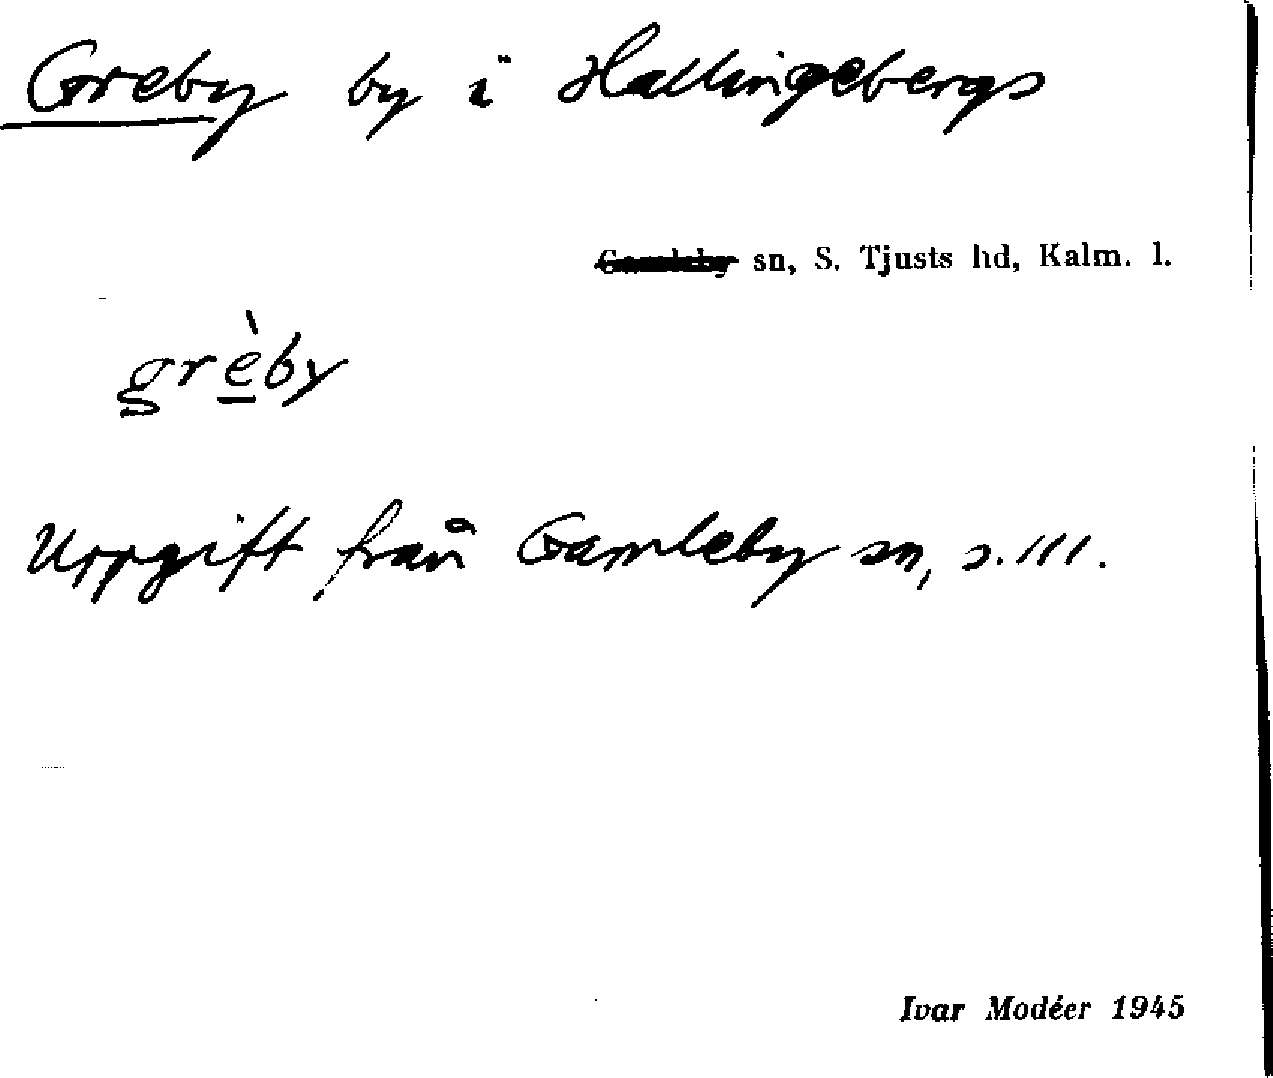 Greby by i Hallingebergs
Gamleby sn, S. Tjusts hd, Kalm. l.
grèby
Uppgift från Gamleby sn, s. 111.
Ivar Modéer 1945